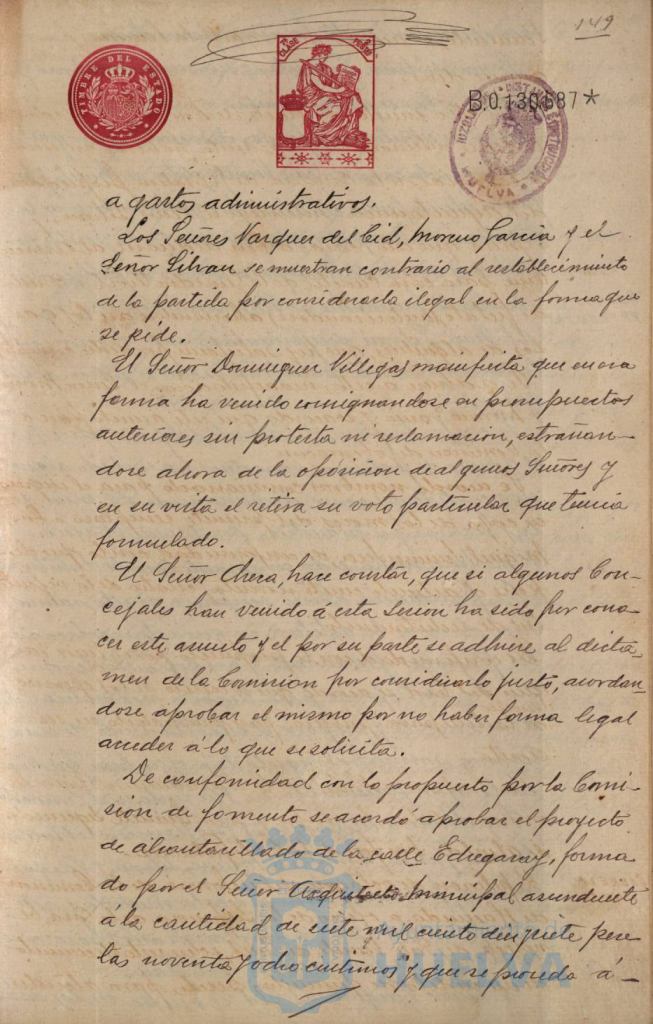 149
TIMBRE DEL ESTADO
7ª CLASE
PESETAS
B.0.130.587*
HUELVA
a gastos administrativos.
Los Señores Vazquez del Cid, Moreno Garcia y el
Señor Silvan se muestran contrario al restablecimiento
de la partida por considerarla ilegal en la forma que
se pide.
El Señor Dominguez Villegas manifiesta que en esa
forma ha venido consignandose en presupuestos
anteriores sin protesta ni reclamación, estrañan-
dose ahora de la oposicion de algunos Señores y
en su vista el retira su voto particular que tenia
formulado.
El Señor Checa, hace constar, que si algunos Con-
cejales han venido á esta sesion ha sido por cono-
cer este asunto y el por su parte se adhiere al dicta-
men de la Comision por considerarlo justo, acordan-
dose aprobar el mismo por no haber forma legal
acceder á lo que se solicita.
De conformidad con lo propuesto por la Comi-
sion de fomento se acordó aprobar el proyecto
de alcantarillado de la calle Echegaray, forma
do por el Señor Arquitecto Municipal ascendente
á la cantidad de siete mil ciento diez y siete pese
tas noventa y ocho centimos y que se proceda á-
HUELVA